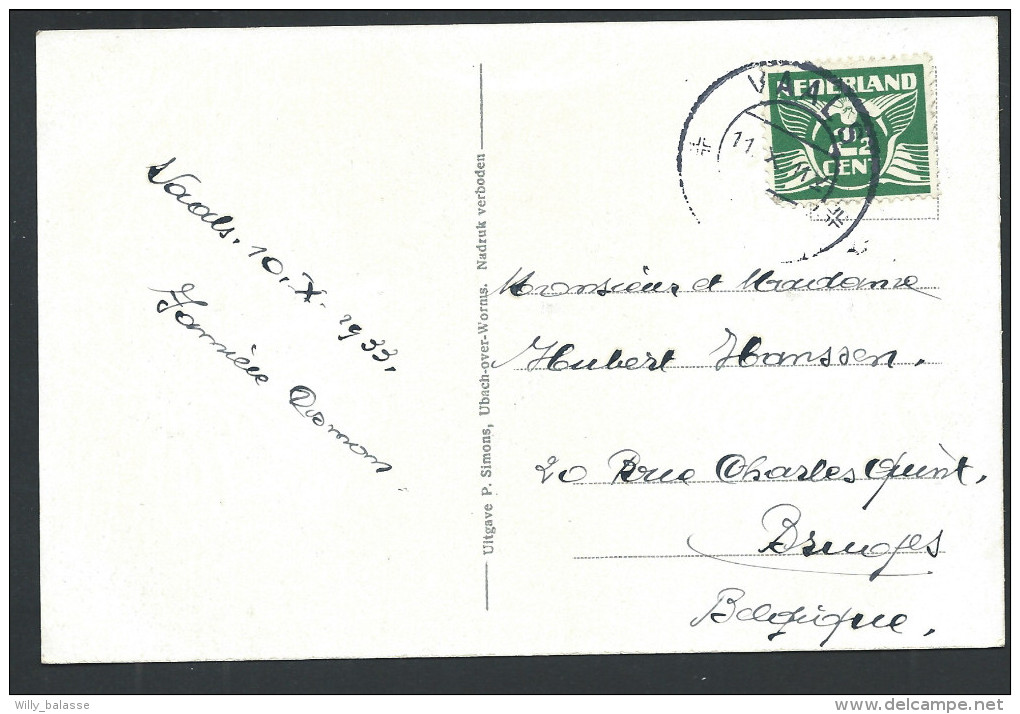 Vaals, 10.X.1933.
Uitgave P. Simons, Ubach-over-Worms. Nadruk verboden
NEDERLAND
2½
CENT
VAALS
11.X
Monsieur et Madame
Hubert Hanssen.
20 Rue Charles Quint,
Bruges
Belgique.
Willy_balasse
www.delcampe.net